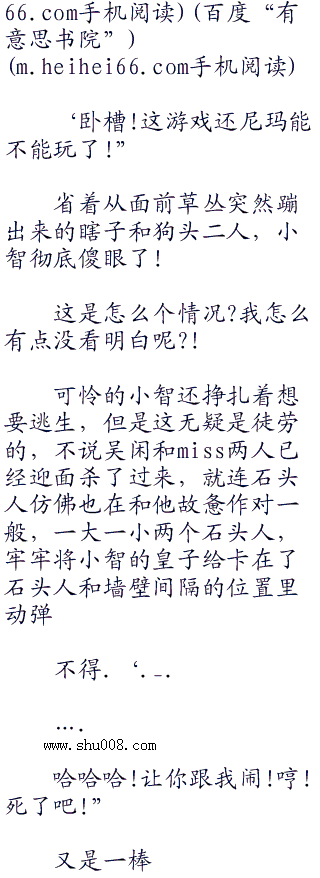 66.com手机阅读)(百度“有
意思书院”)
(m.heihei66.com手机阅读)
‘卧槽!这游戏还尼玛能
不能玩了!”
省着从面前草丛突然蹦
出来的瞎子和狗头二人，小
智彻底傻眼了!
这是怎么个情况?我怎么
有点没看明白呢?!
可怜的小智还挣扎着想
要逃生，但是这无疑是徒劳
的，不说吴闲和miss两人已
经迎面杀了过来，就连石头
人仿佛也在和他故意作对一
般，一大一小两个石头人，
牢牢将小智的皇子给卡在了
石头人和墙壁间隔的位置里
动弹
不得．‘．–．
…．
www.shu008.com
哈哈哈!让你跟我闹!哼!
死了吧!”
又是一棒